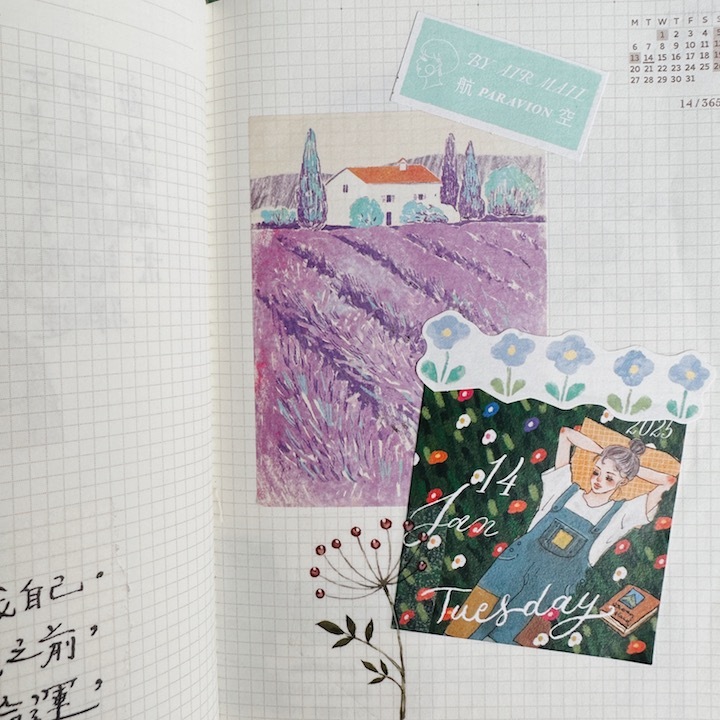 BY AIR MAIL
航 PARAVION 空
M T W T F S
1 2 3 4 5
6 7 8 9 10 11
13 14 15 16 17 18
20 21 22 23 24 25
27 28 29 30 31
14/365
2025
14
Jan
Tuesday
自己。
之前，
運，